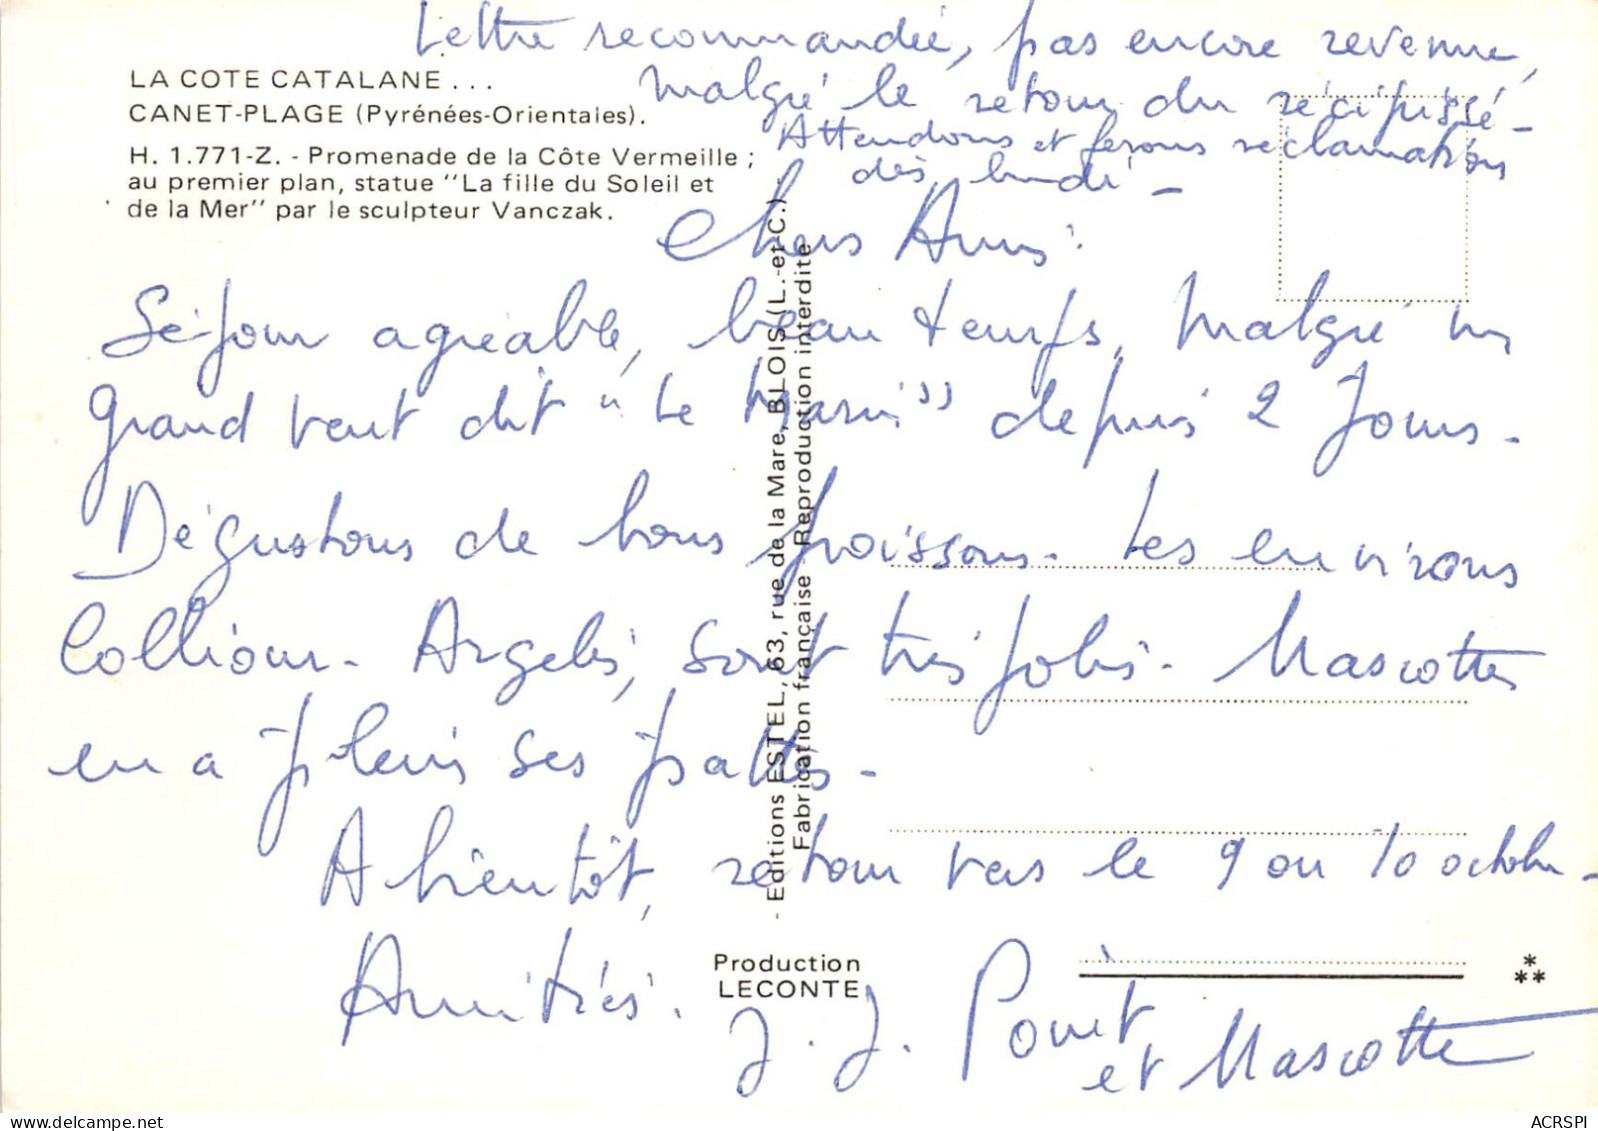 Lettre recommandée, pas encore revenue,
malgré le retour du récipissé -
Attendons et ferons réclamations
dès lundi -
LA COTE CATALANE...
CANET-PLAGE (Pyrénées-Orientales).
H. 1.771-Z. - Promenade de la Côte Vermeille ;
au premier plan, statue "La fille du Soleil et
de la Mer" par le sculpteur Vanczak.
Chers Amis :
Séjour agréable, beau temps, malgré un
grand vent dit "Le Marin" depuis 2 Jours -
Dégustons de bons poissons - Les environs
Collioure - Argelès, sont très jolis - Mascotte
en a plein ses pattes -
A bientôt, retour vers le 9 ou 10 octobre -
Amitiés.
J. J. Pouit
et Mascotte
- Editions ESTEL, 63, rue de la Mare, BLOIS (L.-et-C.) -
Fabrication française - Reproduction interdite
Production
LECONTE
ACRSPI